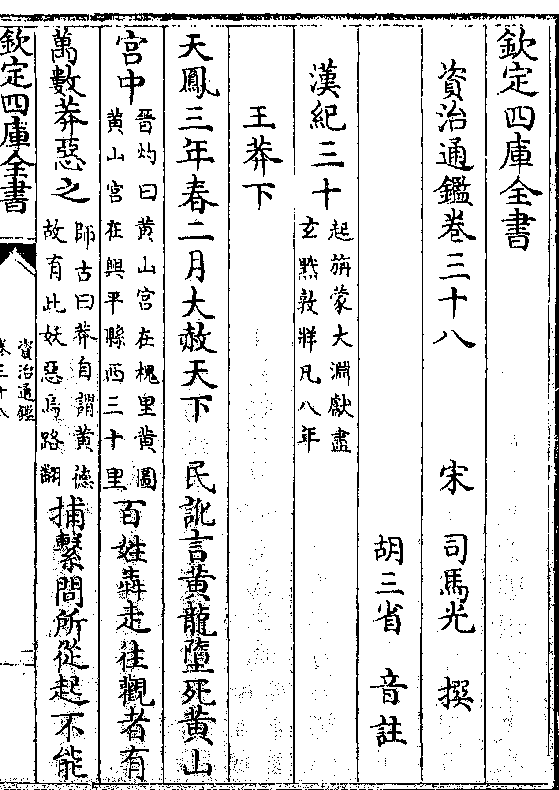 欽定四庫全書
資治通鑑卷三十八 宋 司馬光 撰
胡三省 音註
漢紀三十 起旃蒙大淵獻盡
玄黓敦牂凡八年
王莽下
天鳳三年春二月大赦天下 民訛言黃龍墮死黃山
宮中 晉灼曰黃山宮在槐里黃圖
黃山宮在興平縣西三十里
百姓犇走往觀者有
萬數莽惡之 師古曰莽自謂黃德
故有此妖惡烏路翻
捕繫問所從起不能
欽定四庫全書
資治通鑑
卷三十八